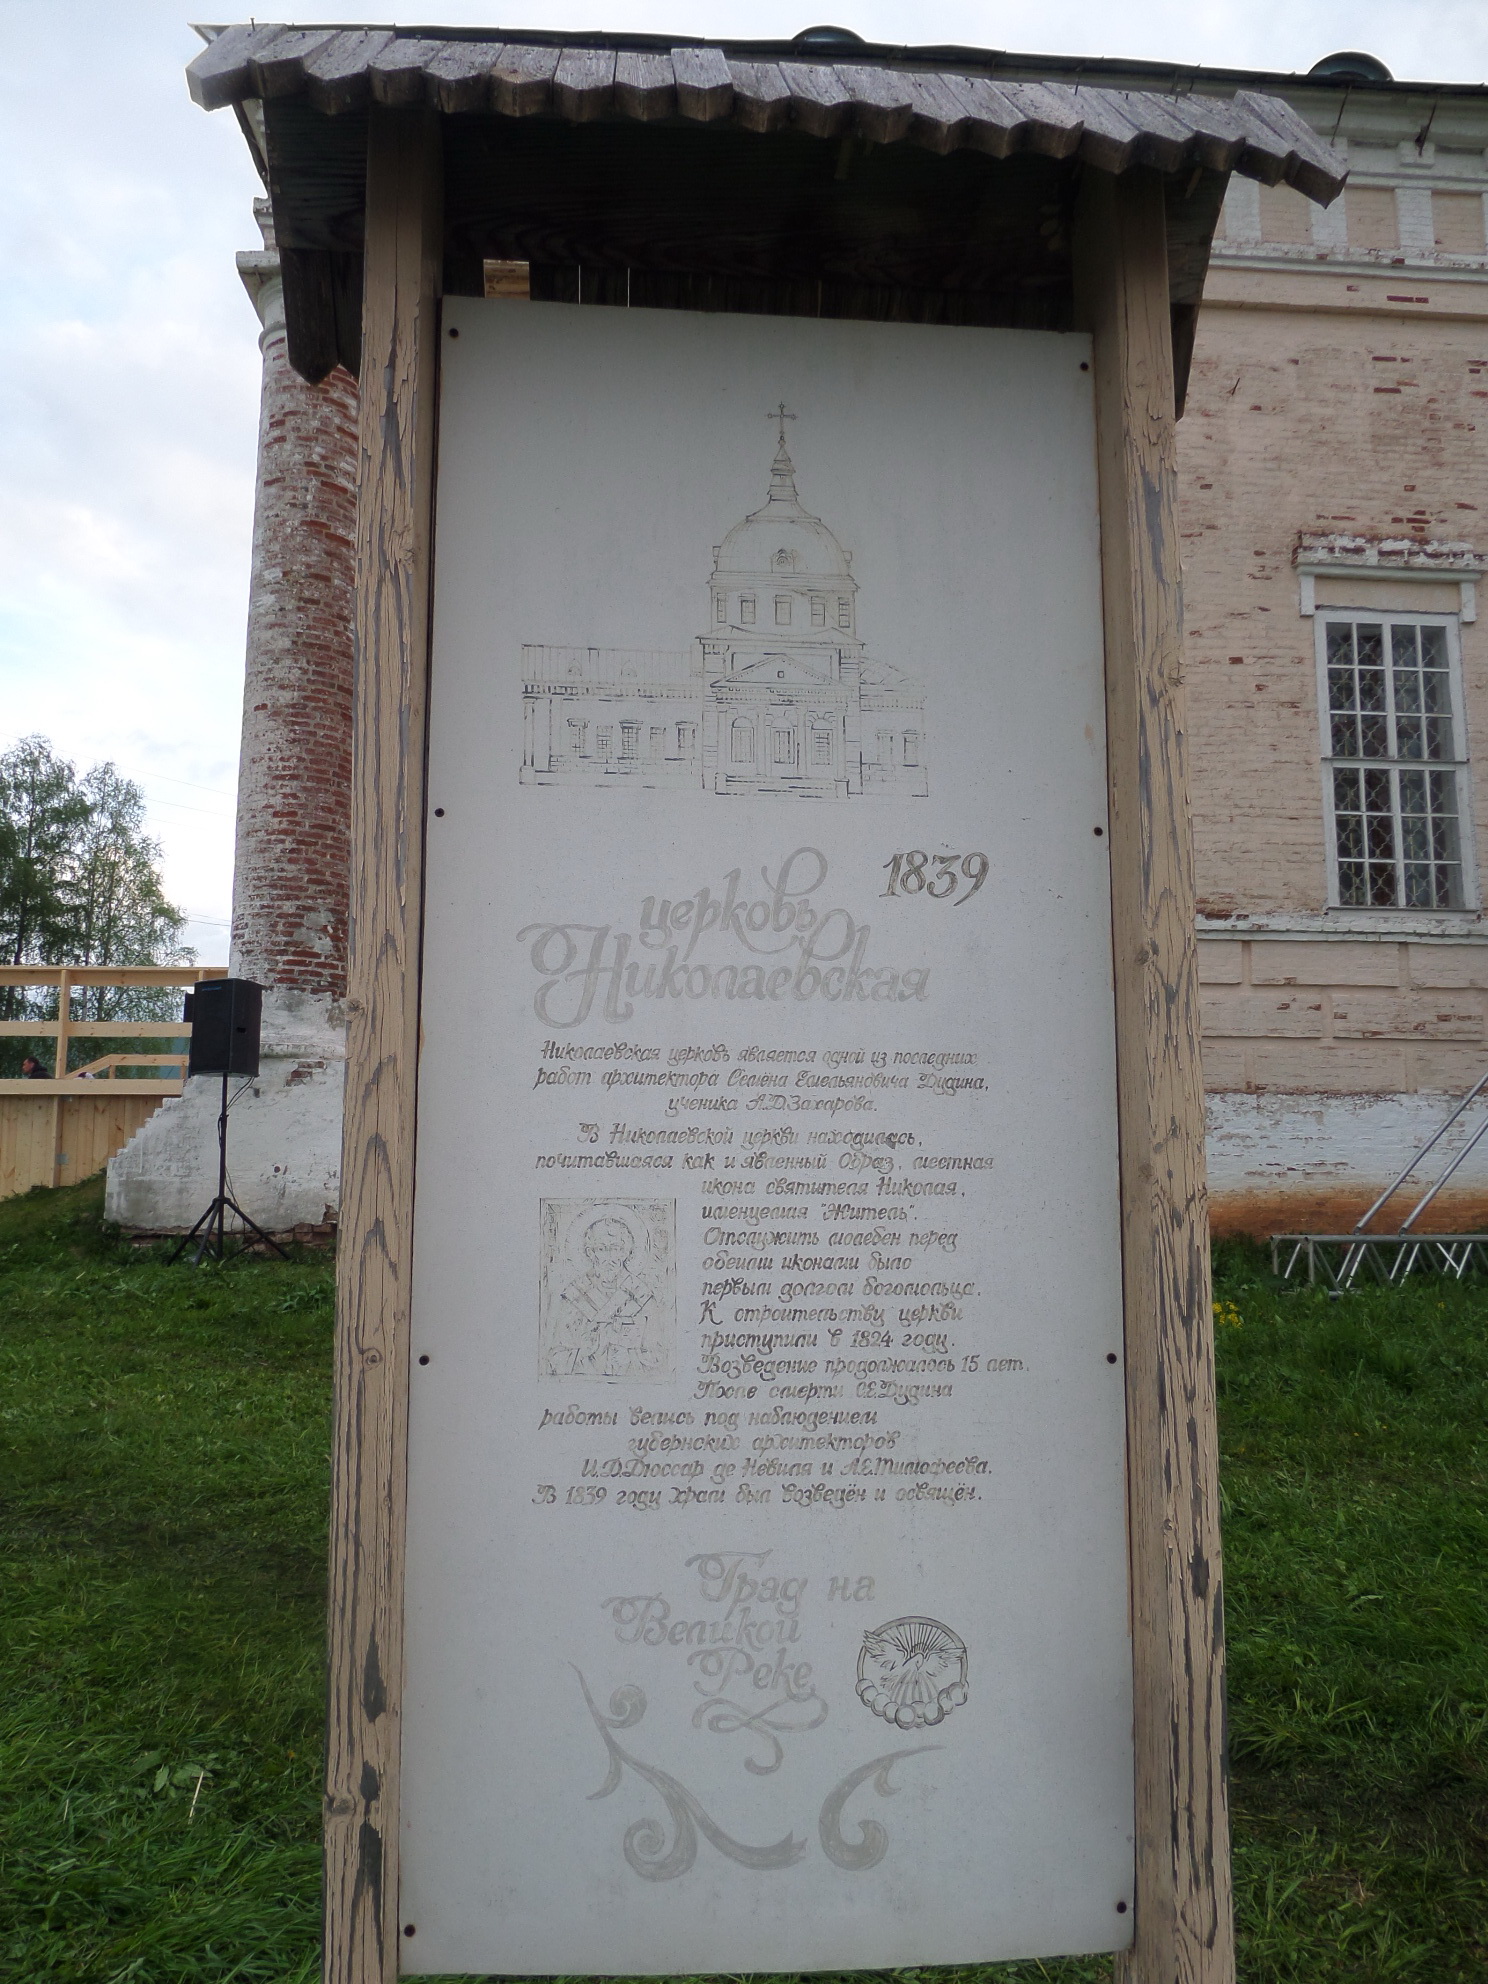 1839
церковь
Николаевская
Николаевская церковь является одной из последних
работ архитектора Семёна Емельяновича Дудина,
ученика А.Д.Захарова.
В Николаевской церкви находилась,
почитавшаяся как и явленный Образ, местная
икона святителя Николая,
именуемая "Житель".
Отслужить молебен перед
обеими иконами было
первым долгом богомольца.
К строительству церкви
приступили в 1824 году.
Возведение продолжалось 15 лет.
После смерти С.Е.Дудина
работы велись под наблюдением
губернских архитекторов
И.Д.Дюссар де Невиля и А.Е.Тимофеева.
В 1839 году храм был возведён и освящён.
Град на
Великой
Реке